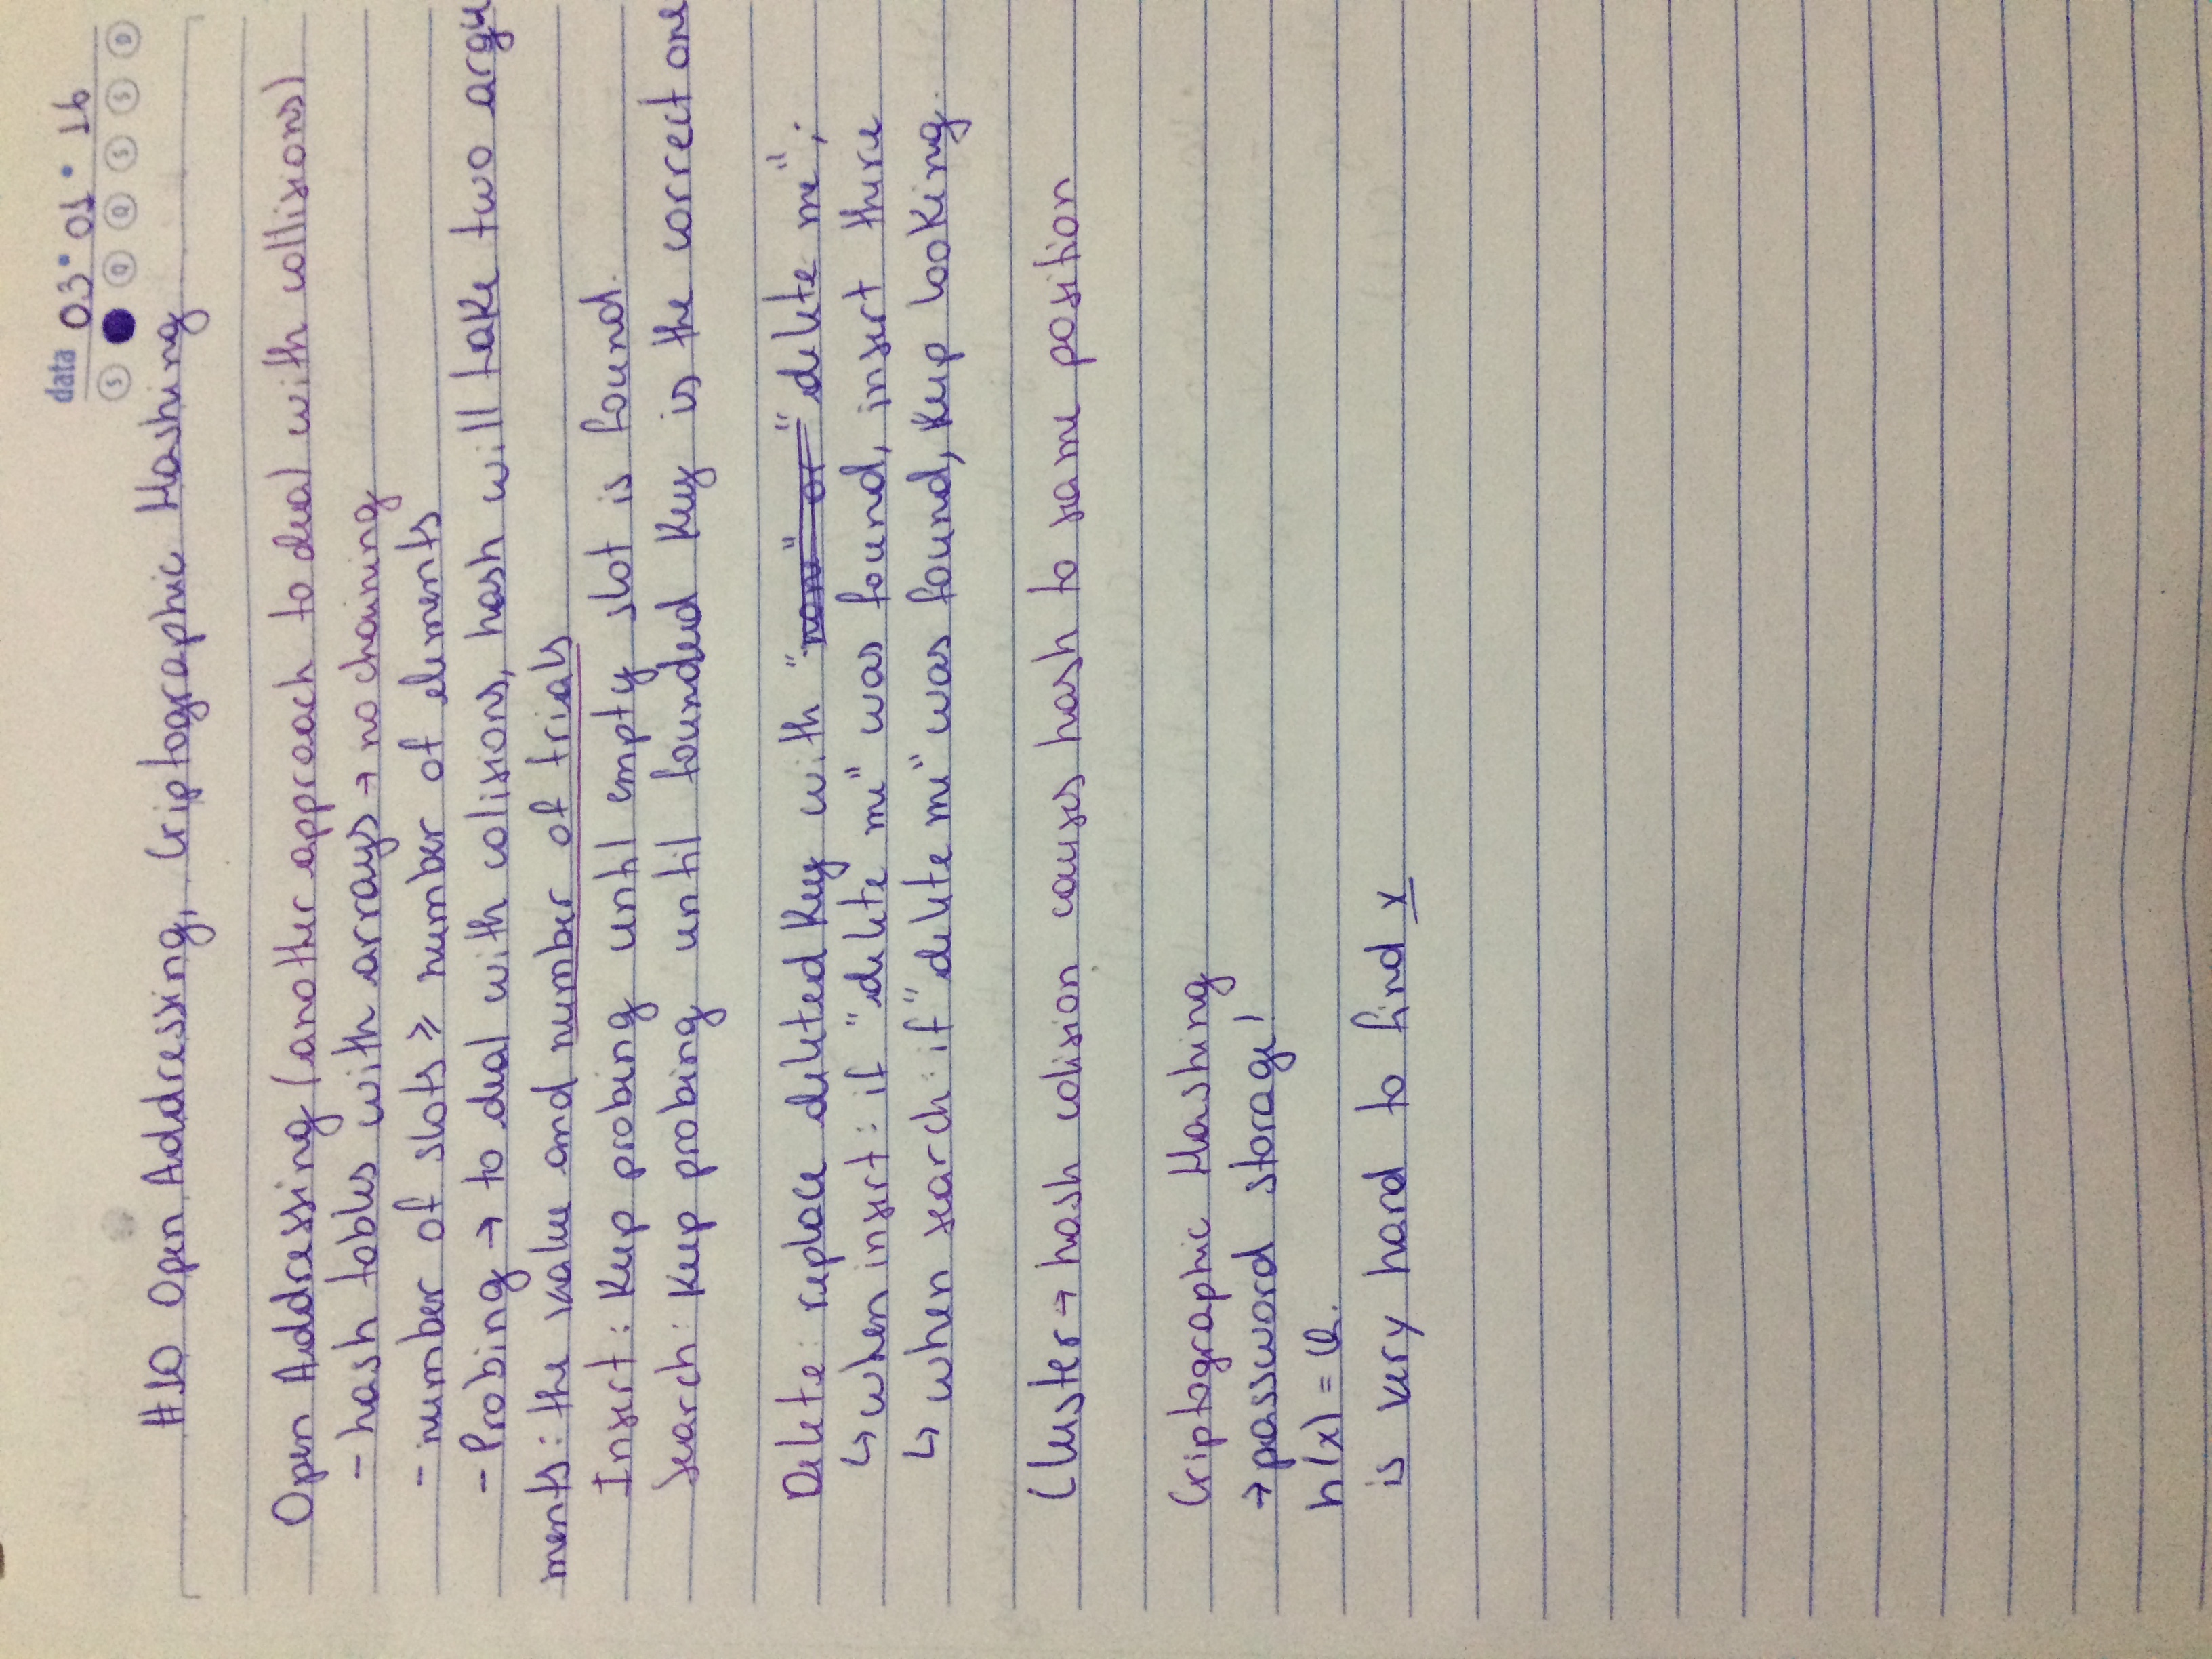 data 03 • 01 • 16
S Q Q S S D
#10 Open Addressing, Criptographic Hashing
Open Addressing (another approach to deal with collisions)
- hash tables with arrays → no chaining
- number of slots ≥ number of elements
- Probing → to deal with colisions, hash will take two argu
ments: the value and number of trials
Insert: Keep probing until empty slot is found.
Search: Keep probing until founded Key is the correct one
Delete: replace deleted Key with "none" or "delete me";
↳ when insert: if "delete me" was found, insert there
↳ when search: if "delete me" was found, Keep looking.
Cluster → hash colision causes hash to same position
Criptographic Hashing
→ password storage!
h(x) = Q.
is very hard to find x